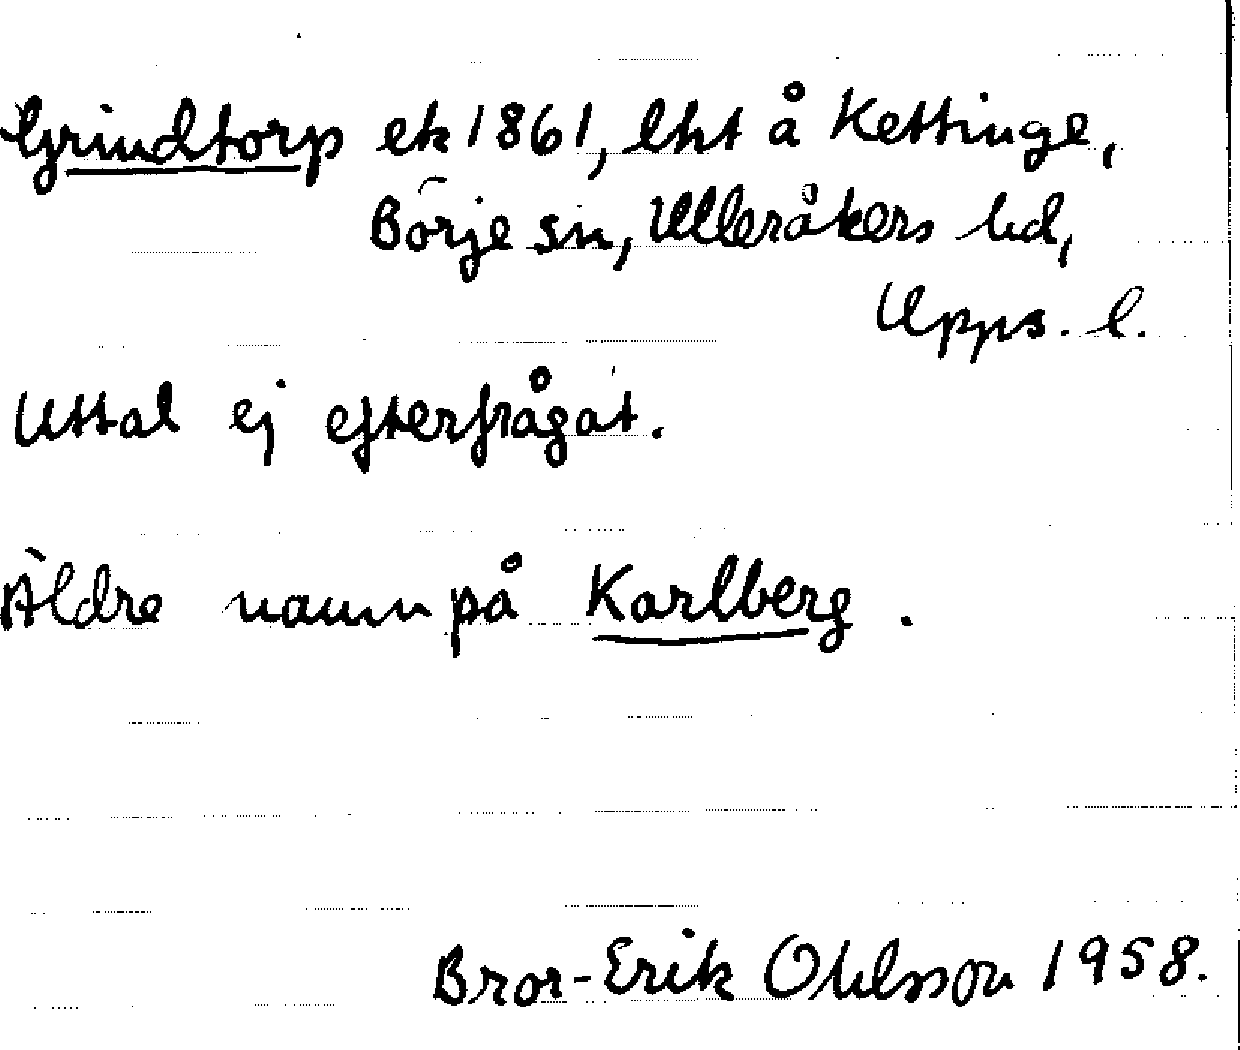 Grindtorp ek 1861, lht å Kettinge,
Börje sn, Ulleråkers hd,
Upps. l.
Uttal ej efterfrågat.
Äldre namn på Karlberg.
Bror-Erik Ohlsson 1958.